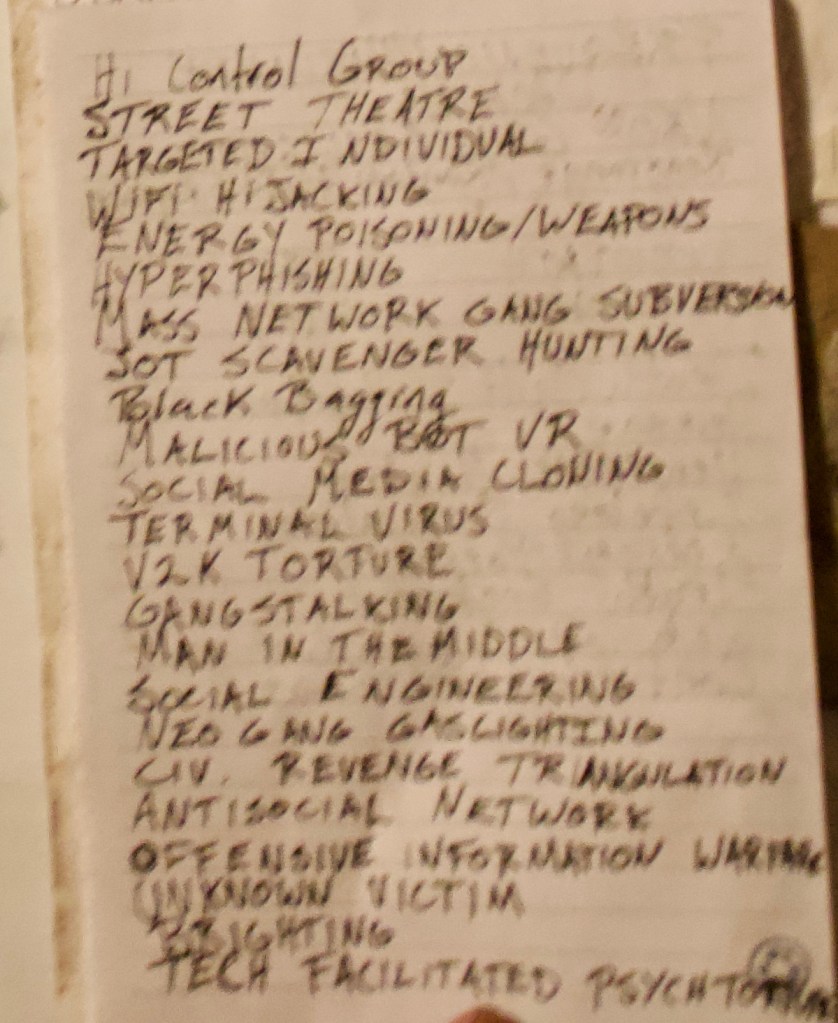 Hi Control GROUP
STREET THEATRE
TARGETED INDIVIDUAL
WIFI HiJACKING
ENERGY POISONING/WEAPONS
HYPERPHISHING
MASS NETWORK GANG SUBVERSION
SCAVENGER HUNTING
Black Bagging
MALICIOUS BOT VR
SOCIAL MEDIA CLONING
TERMINAL VIRUS
V2K TORTURE
GANGSTALKING
MAN IN THE MIDDLE
SOCIAL ENGINEERING
NEO GANG GASLIGHTING
CIV. REVENGE TRIANGULATION
ANTISOCIAL NETWORK
OFFENSIVE INFORMATION WARFARE
UNKNOWN VICTIM
TECH FACILITATED PSYCH